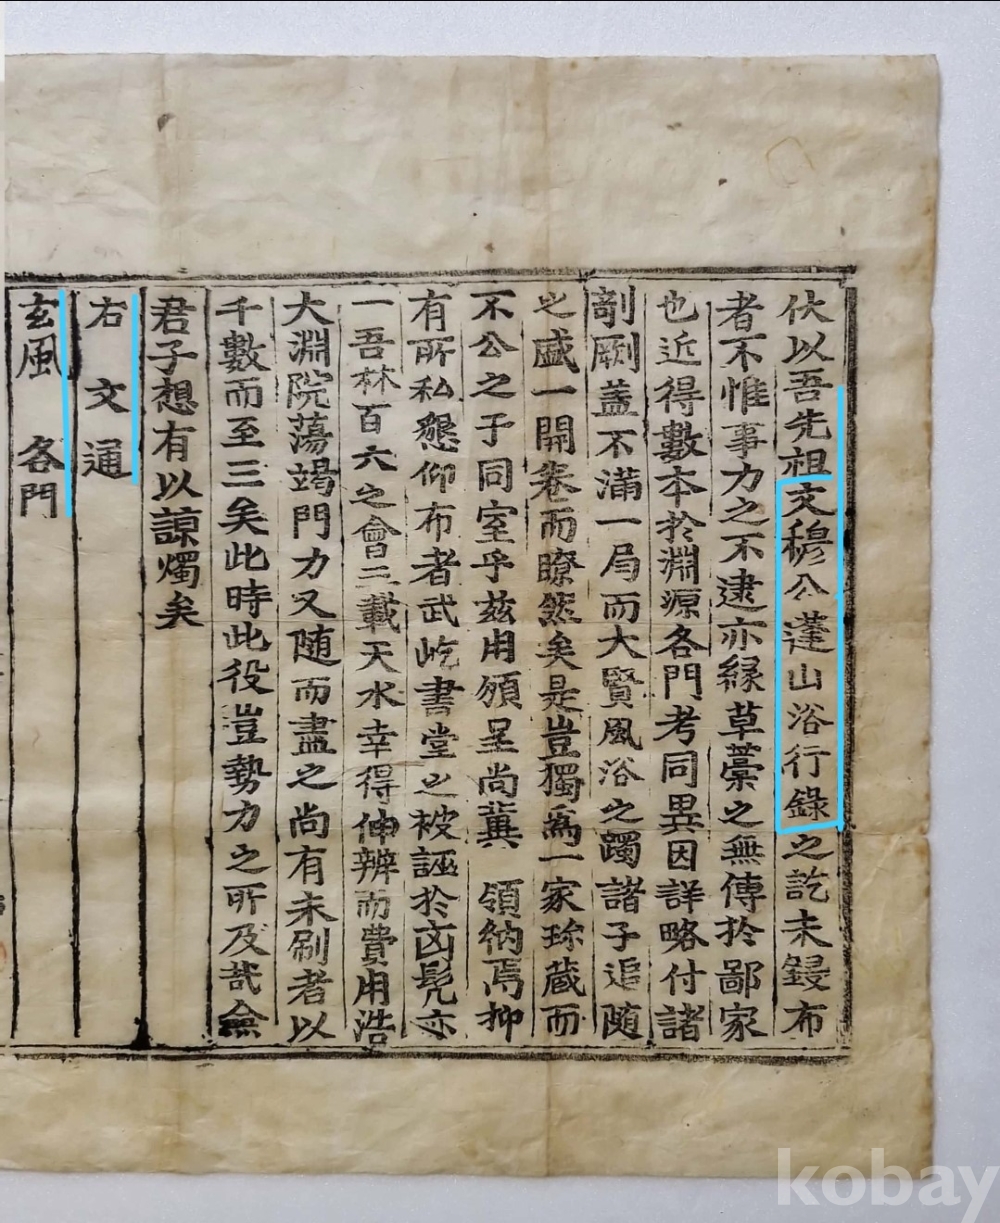 伏以吾先祖文穆公蓬山浴行錄之訖未鋟布
者不惟事力之不逮亦緣草藁之無傳於鄙家
也近得數本於淵源各門考同異因詳略付諸
剞劂蓋不滿一局而大賢風浴之躅諸子追隨
之盛一開卷而瞭然矣是豈獨爲一家珍藏而
不公之于同室乎玆用頒呈尚冀 領納焉抑
有所私懇仰布者武屹書堂之被誣於凶髡亦
一吾林百六之會二載天水幸得伸辨而費用浩
大淵院蕩竭門力又随而盡之尚有未刷者以
千數而至三矣此時此役豈勢力之所及哉僉
君子想有以諒燭矣
右 文 通
玄風 各門
kobay